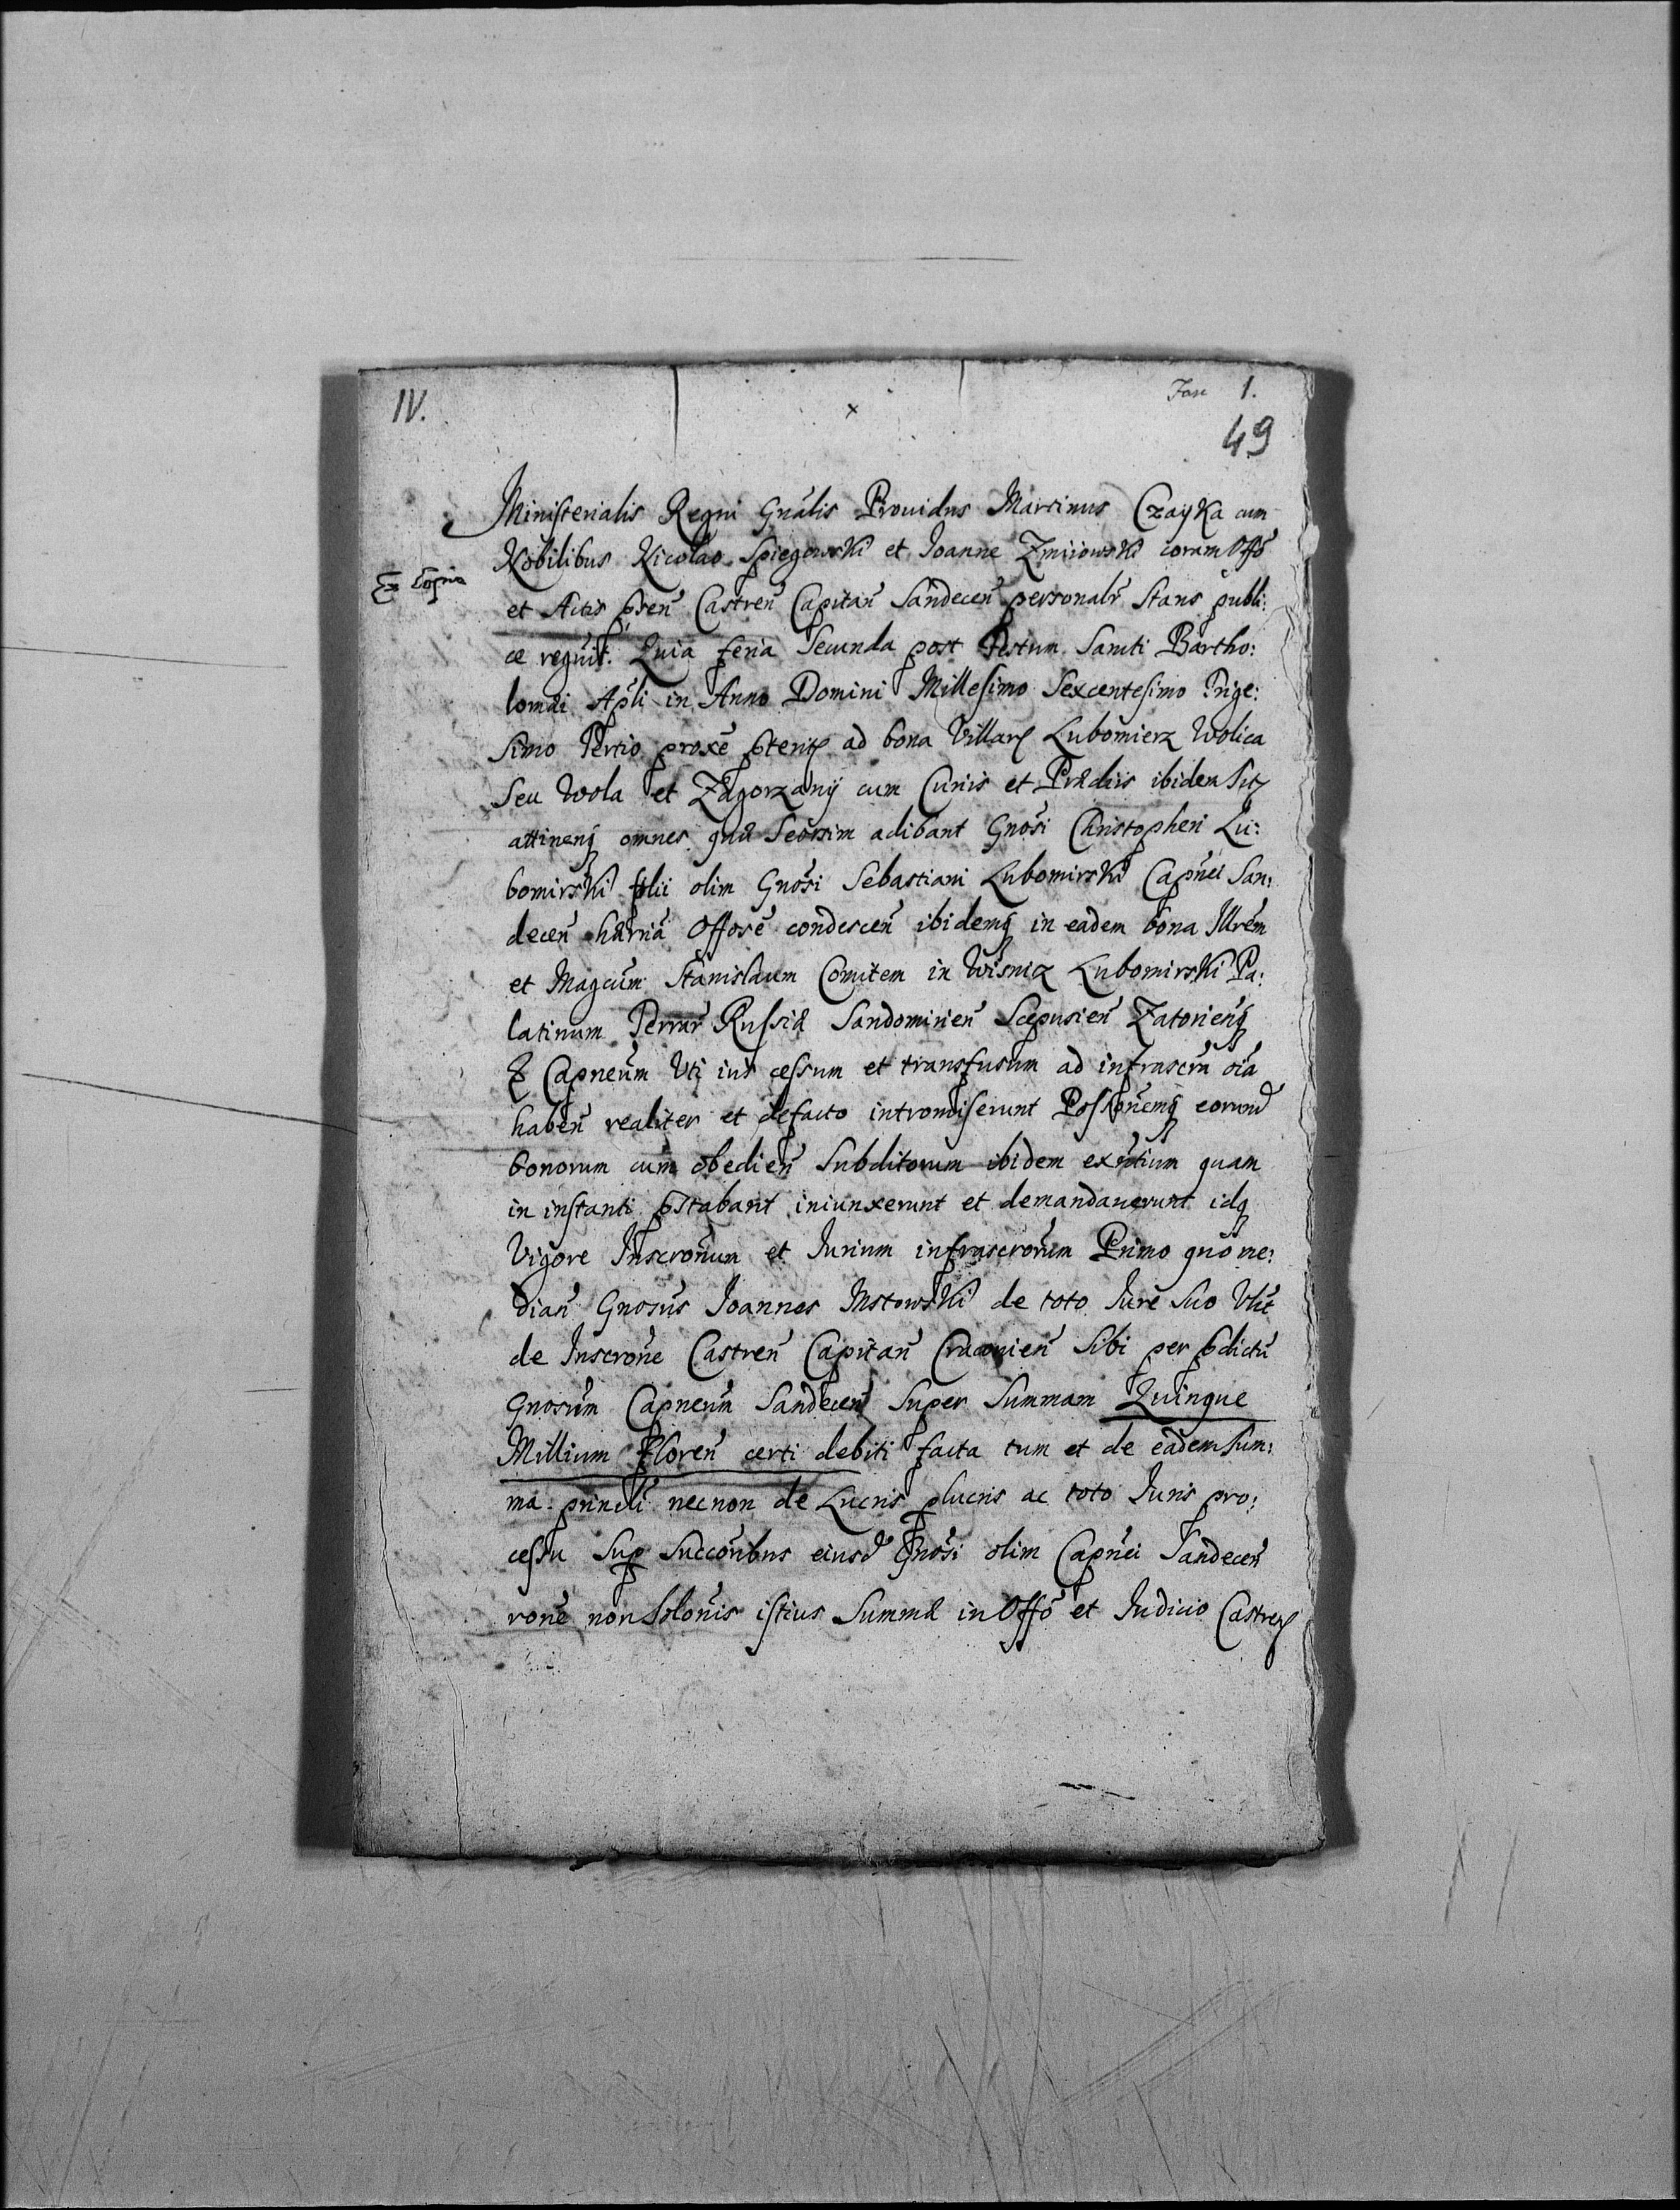 IV.
1.
49
Ministerialis Regni Gnãlis Prouidus Martinus Czayka cum
Nobilibus Nicolao Spiegowski et Joanne Zmiiowski coram Offõ
Ex Copia
et Actis pñsen Castreñ Capitañ Sandeceñ personalr̃ stans publi:
ce
Quia feria Secunda post Festum Sancti Bartho:
lomæi Apłi in Anno Domini Millesimo Sexcentesimo Trige:
simo Tertio proxẽ ad bona Villarꝭ Lubomierz Wolica
seu Wola et Zagorzany cum Curiis et Prædiis ibidem
attineñq omnes quæ seorsim adibant Gnõsi Christopheri Lu:
bomirski filii olim Gnõsi Sebastiani Lubomirski Capnẽi San:
deceñ Offosẽ condesceñ ibidemq in eadem bona Illrẽm
et Magcũm Stanislaum Comitem in Wisnicz Lubomirski Pa:
latinum Terrar̃ Russiæ Sandomirieñ Scepusieñ Zatorieñq
& Capneũm Uti ius cessum et transfusum ad infrascrã oiã
habeñ realiter et defacto intromiserunt Possoñemq eorund
bonorum cum obedieñ Subditorum ibidem exñtium quam
in instanti pstabant iniunxerunt et demandauerunt idq
Vigore Inscroñum et Jurium infrascroñum Primo quõ me:
diañ Gnosus Joannes Mstowski de toto Jure suo Ulit
de Inscronẽ Castreñ Capitañ Cracouieñ sibi per pdictũ
Gnosũm Capneũm Sandeceñ super Summam Quinque
Millium Floreñ certi debiti facta tum et de eadem Sum:
ma princłi necnon de Lucris plucris ac toto Juris pro:
cessu Sup Succoñbus eiusd Gnosi olim Capnẽi Sandeceñ
ronẽ non Soloñis istius Summæ in Offõ et Judicio Castreꝭ